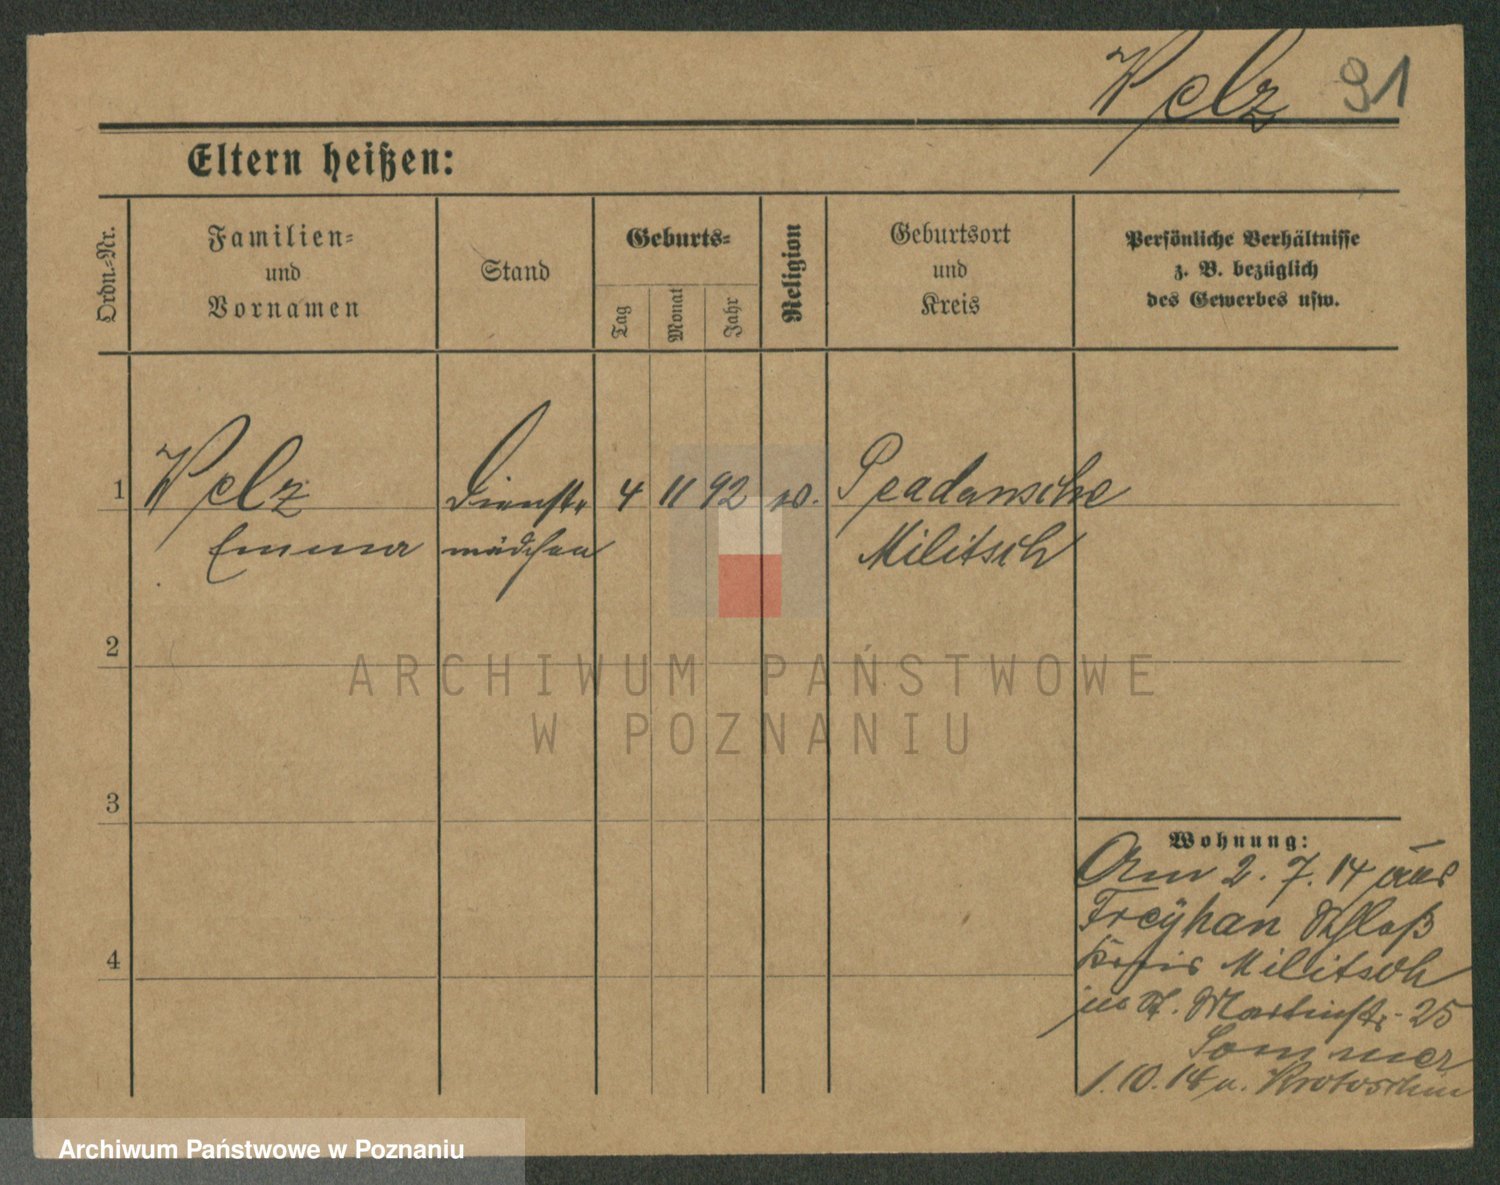 Velz 91
Eltern heißen:
Ordn.-Nr.
Familien-
und
Vornamen
Stand
Geburts-
Tag
Monat
Jahr
Religion
Geburtsort
und
Kreis
Persönliche Verhältnisse
z. B. bezüglich
des Gewerbes usw.
1 Velz Dienst- 4 11 92
Emma mädchen Militsch
2
3
4
Wohnung:
Am 2. 7. 14 aus
Freyhan Schloß
Kreis Militsch
in St. Martinstr. 25
Sommer
1. 10. 14 n. Krotoschin
ARCHIWUM PAŃSTWOWE
W POZNANIU
Archiwum Państwowe w Poznaniu